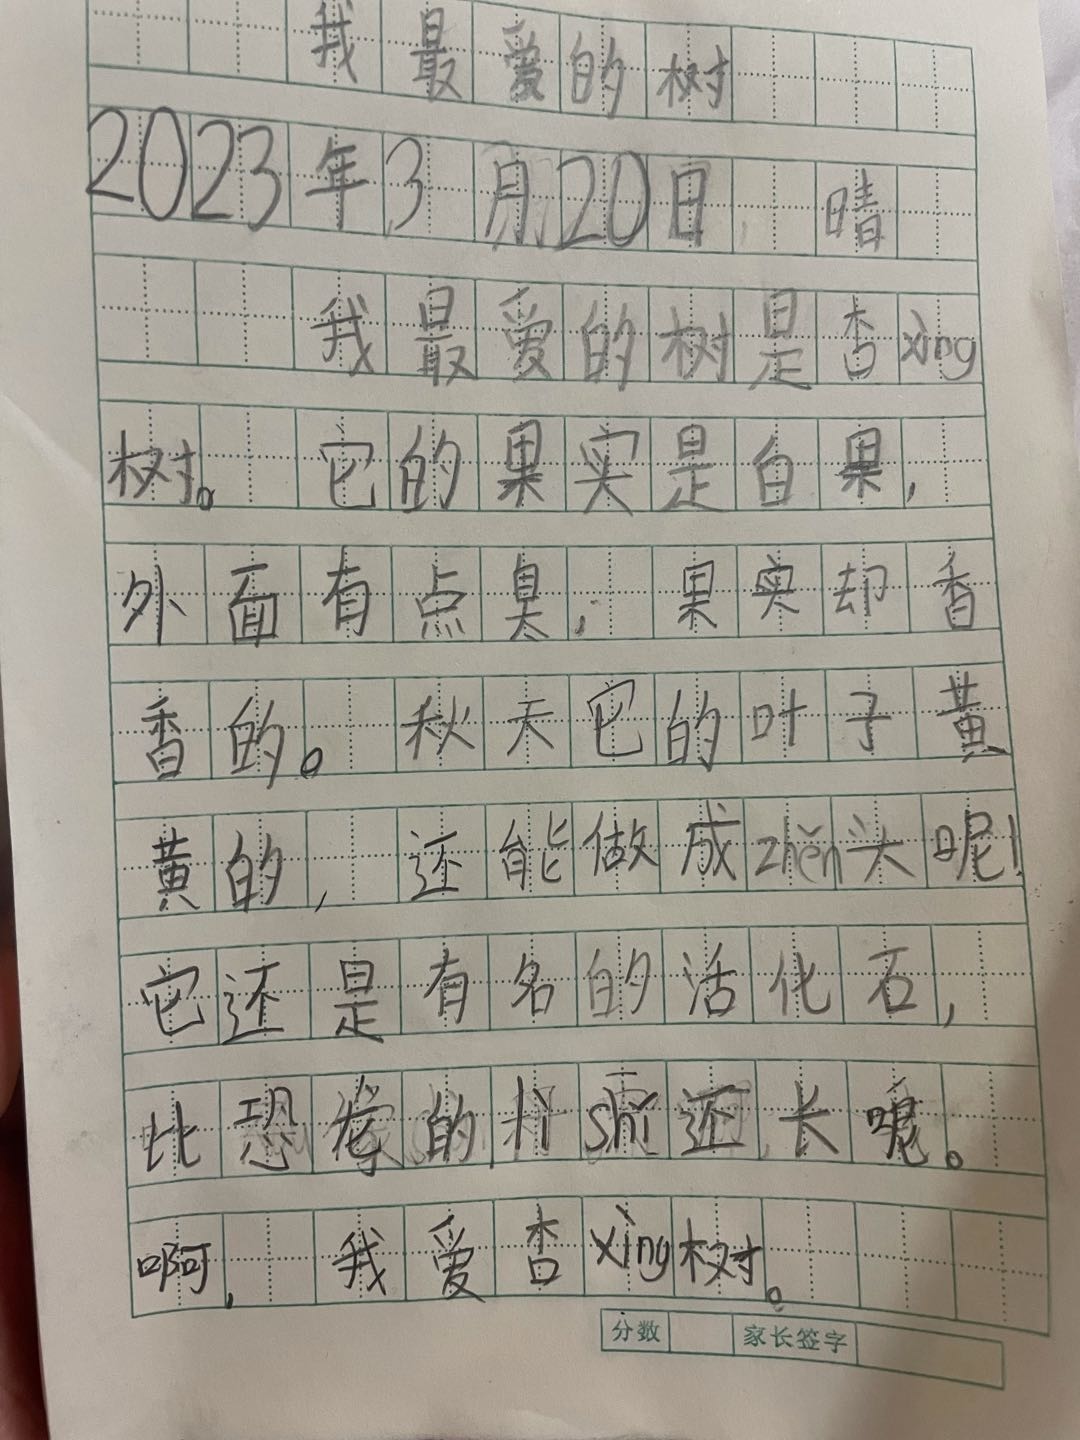 我最爱的树
2023年3月20日 晴
我最爱的树是杏xìng
树。它的果实是白果，
外面有点臭，果实却香
香的。秋天它的叶子黄
黄的，还能做成zhěn头呢！
它还是有名的活化石，
比恐龙的lì shǐ还长呢。
啊，我爱杏xìng树。
分数 家长签字